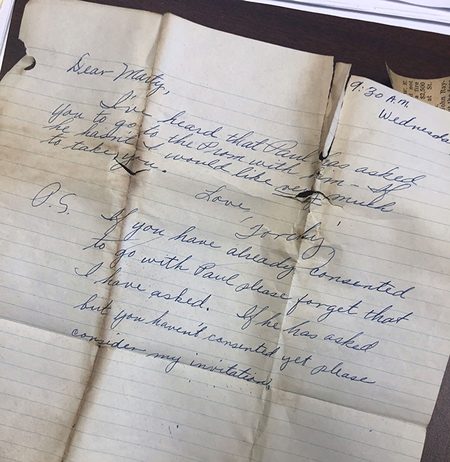 9:30 A.M.
Wednesda
Dear Marty,
I've heard that Paul has asked
you to go to the Prom with him - If
he hasn't I would like very much
to take you.
Love,
Tordy
P.S. If you have already consented
to go with Paul please forget that
I have asked. If he has asked
but you haven't consented yet please
consider my invitation.